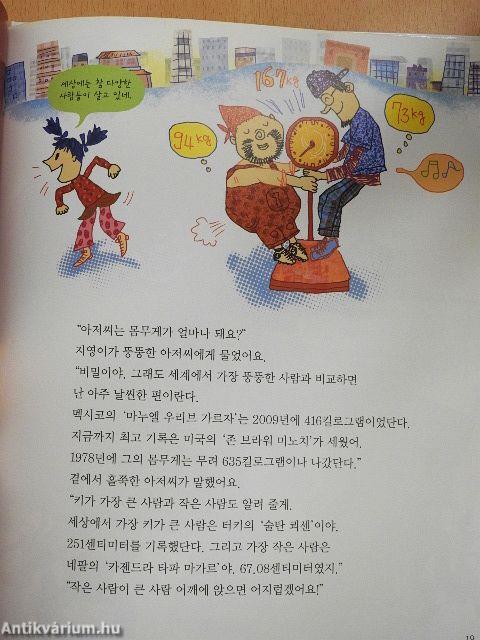 세상에는 참 다양한
사람들이 살고 있네.
167kg
94kg
73kg
"아저씨는 몸무게가 얼마나 돼요?"
지영이가 뚱뚱한 아저씨에게 물었어요.
"비밀이야. 그래도 세계에서 가장 뚱뚱한 사람과 비교하면
난 아주 날씬한 편이란다.
멕시코의 '마누엘 우리브 가르자'는 2009년에 416킬로그램이었단다.
지금까지 최고 기록은 미국의 '존 브라워 미노치'가 세웠어.
1978년에 그의 몸무게는 무려 635킬로그램이나 나갔단다."
곁에서 홀쭉한 아저씨가 말했어요.
"키가 가장 큰 사람과 작은 사람도 알려 줄게.
세상에서 가장 키가 큰 사람은 터키의 '술탄 쾨센'이야.
251센티미터를 기록했단다. 그리고 가장 작은 사람은
네팔의 '카젠드라 타파 마가르'야. 67.08센티미터였지."
"작은 사람이 큰 사람 어깨에 앉으면 어지럽겠어요!"
19
Antikvárium.hu